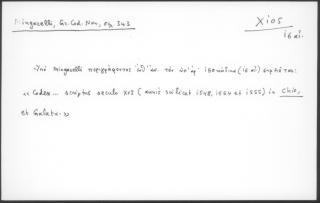 Mingarelli, Gr. Cod. Nan., σελ. 343
Χίος
16 αἰ.
Ὑπὸ Mingarelli περιγράφοντος τὸν ὑπ' ἀρ. 180 κώδικα (16 αἰ) σημ
"Codex... scriptus seculo XVI (annis scilicet 1548, 1554 et 1555) in Chio,
et Galata."